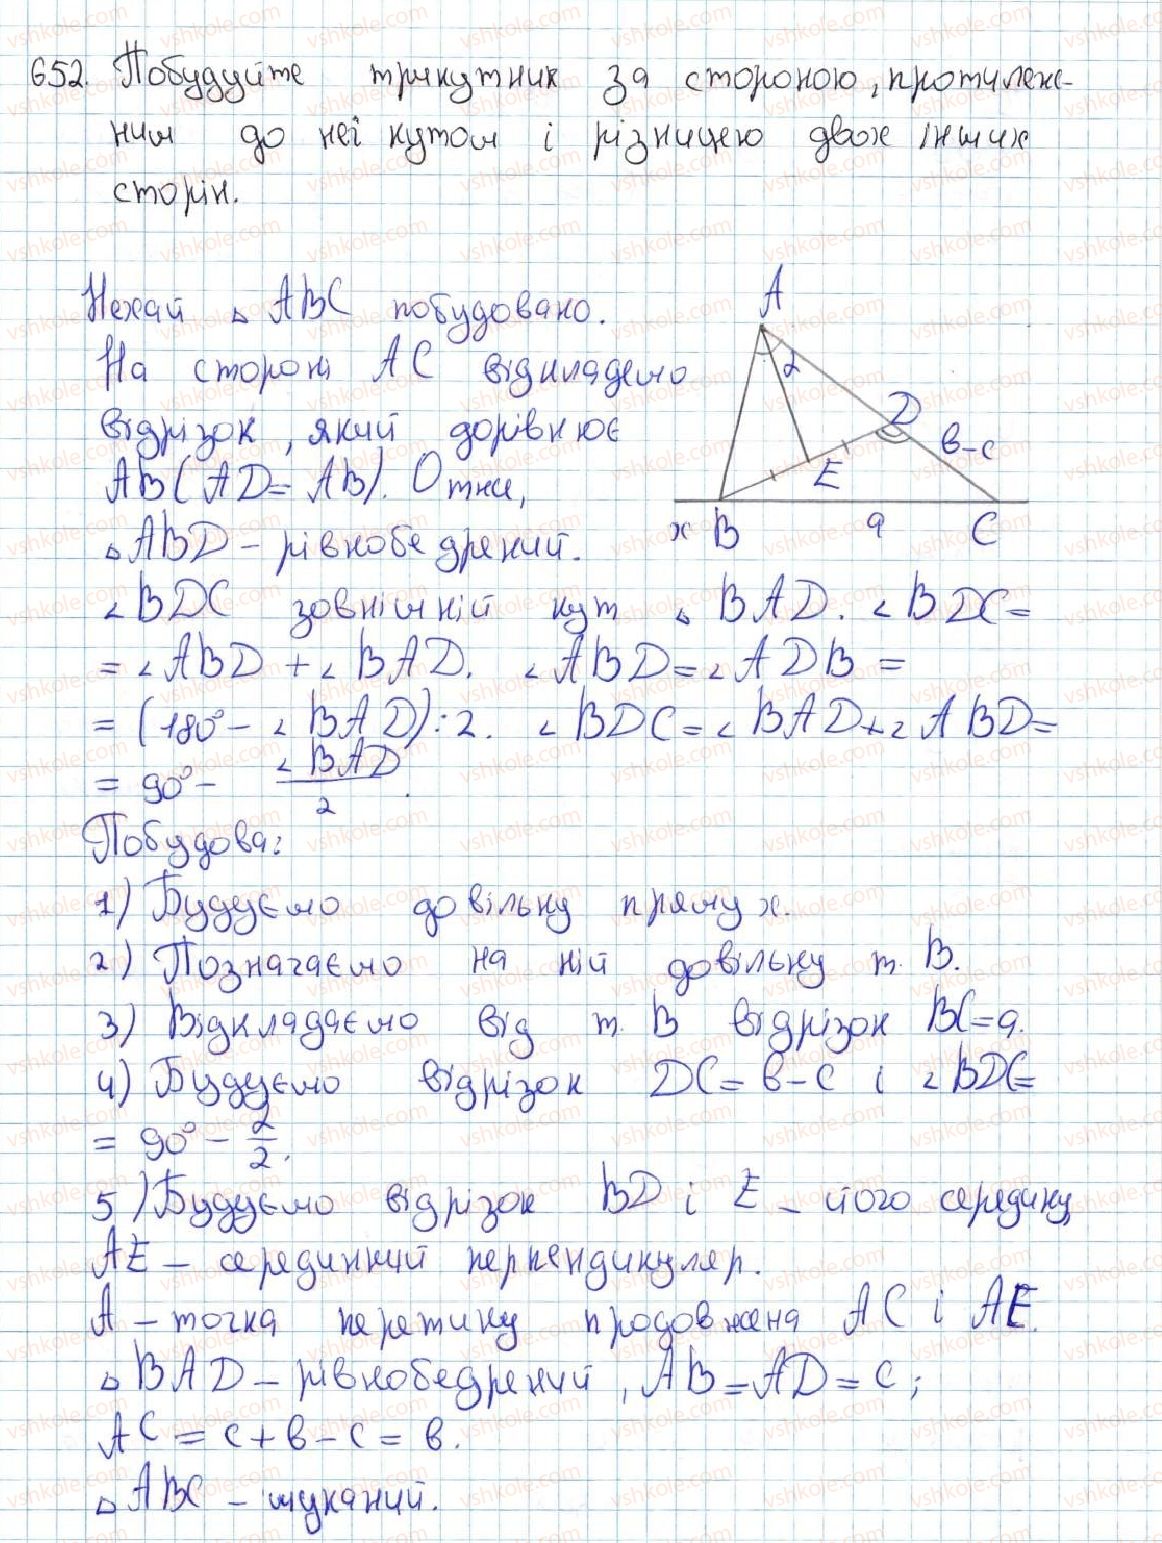 652. Побудуйте трикутник за стороною, протилеж-
ним до неї кутом і різницею двох інших
сторін.
Нехай △ ABC побудовано.
На стороні AC відкладемо
відрізок, який дорівнює
AB (AD = AB). Отже,
△ ABD – рівнобедрений.
∠BDC зовнішній кут △ BAD. ∠BDC =
= ∠ABD + ∠BAD. ∠ABD = ∠ADB =
= (180° – ∠BAD) : 2. ∠BDC = ∠BAD + ∠ABD =
= 90° – ∠BAD/2.
A
2
D
в-с
E
х B a C
Побудова:
1) Будуємо довільну пряму х.
2) Позначаємо на ній довільну т. B.
3) Відкладаємо від т. B відрізок BC = a.
4) Будуємо відрізок DC = в – с і ∠BDC =
= 90° – 2/2.
5) Будуємо відрізок BD і E – його середину,
AE – серединний перпендикуляр.
A – точка перетину продовжена AC і AE.
△ BAD – рівнобедрений, AB = AD = c;
AC = c + в – c = в.
△ ABC – шуканий.